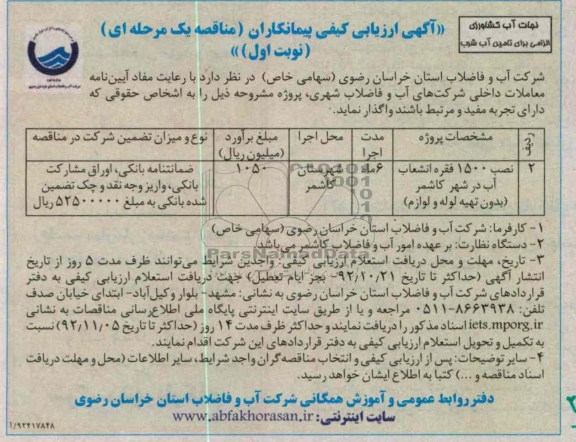 نجات آب کشاورزی
الزامی برای تامین آب شرب
«آگهی ارزیابی کیفی پیمانکاران (مناقصه یک مرحله ای)
(نوبت اول)»
شرکت آب و فاضلاب استان خراسان رضوی (سهامی خاص) در نظر دارد با رعایت مفاد آیین‌نامه
معاملات داخلی شرکت‌های آب و فاضلاب شهری، پروژه مشروحه ذیل را به اشخاص حقوقی که
دارای تجربه مفید و مرتبط باشند واگذار نماید.
ردیف | مشخصات پروژه | مدت اجرا | محل اجرا | مبلغ برآورد (میلیون ریال) | نوع و میزان تضمین شرکت در مناقصه
۲ | نصب ۱۵۰۰ فقره انشعاب آب در شهر کاشمر (بدون تهیه لوله و لوازم) | ۶ماه | شهرستان کاشمر | ۱۰۵۰ | ضمانتنامه بانکی، اوراق مشارکت بانکی، واریز وجه نقد و چک تضمین شده بانکی به مبلغ ۵۲۵۰۰۰۰۰ ریال
۱- کارفرما: شرکت آب و فاضلاب استان خراسان رضوی (سهامی خاص)
۲- دستگاه نظارت: بر عهده امور آب و فاضلاب کاشمر می‌باشد
۳- تاریخ، مهلت و محل دریافت استعلام ارزیابی کیفی: واجدین شرایط می‌توانند ظرف مدت ۵ روز از تاریخ
انتشار آگهی (حداکثر تا تاریخ ۹۲/۱۰/۲۱- بجز ایام تعطیل) جهت دریافت استعلام ارزیابی کیفی به دفتر
قراردادهای شرکت آب و فاضلاب استان خراسان رضوی به نشانی: مشهد- بلوار وکیل‌آباد- ابتدای خیابان صدف
تلفن: ۸۶۶۳۹۳۸-۰۵۱۱ مراجعه و یا از طریق سایت اینترنتی پایگاه ملی اطلاع‌رسانی مناقصات به نشانی
iets.mporg.ir اسناد مذکور را دریافت نمایند و حداکثر ظرف مدت ۱۴ روز (حداکثر تا تاریخ ۹۲/۱۱/۰۵) نسبت
به تکمیل و تحویل استعلام ارزیابی کیفی به دفتر قراردادهای این شرکت اقدام نمایند.
۴- سایر توضیحات: پس از ارزیابی کیفی و انتخاب مناقصه‌گران واجد شرایط، سایر اطلاعات (محل و مهلت دریافت
اسناد مناقصه و ...) کتبا به اطلاع ایشان خواهد رسید.
دفتر روابط عمومی و آموزش همگانی شرکت آب و فاضلاب استان خراسان رضوی
سایت اینترنتی: www.abfakhorasan.ir
۱/۹۲۴۱۷۸۴۸